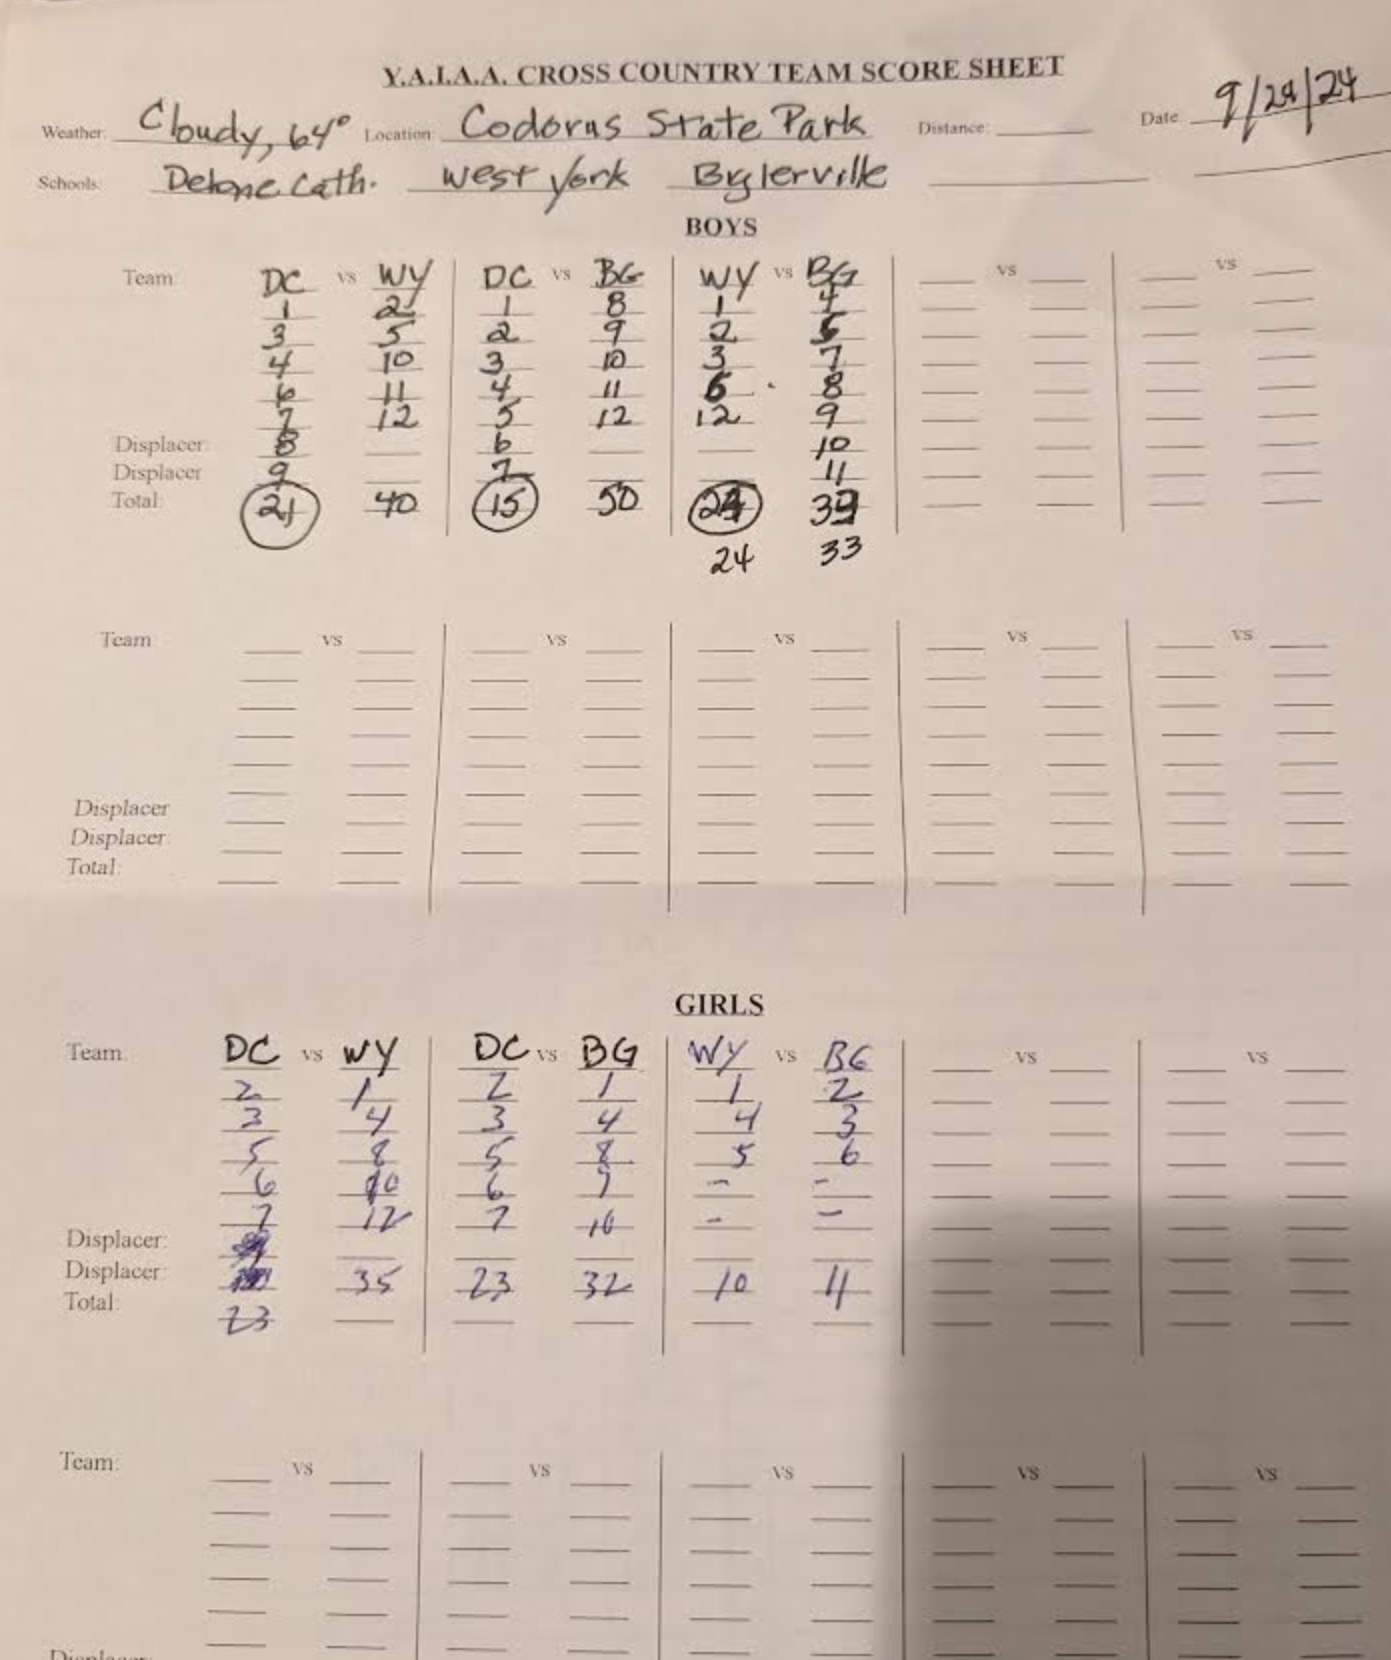 Y.A.I.A.A. CROSS COUNTRY TEAM SCORE SHEET
Weather: Cloudy, 64° Location: Codorus State Park Distance: Date 9/24/24
Schools: Delone Cath. West York Biglerville
BOYS
Team: DC vs WY DC vs BG WY vs BG vs vs
1 2 1 8 1 4
3 5 2 9 2 5
4 10 3 10 3 7
6 11 4 11 6 8
7 12 5 12 12 9
Displacer: 8 6 10
Displacer 9 7 11
Total: 21 40 15 50 24 39
24 33
Team vs vs vs vs vs
Displacer
Displacer:
Total:
GIRLS
Team: DC vs WY DC vs BG WY vs BG vs vs
2 1 2 1 1 2
3 4 3 4 4 3
5 8 5 8 5 6
6 10 6 9 - -
7 12 7 10 - -
Displacer:
Displacer: 35 23 32 10 11
Total: 23
Team: vs vs vs vs vs
Displacer: